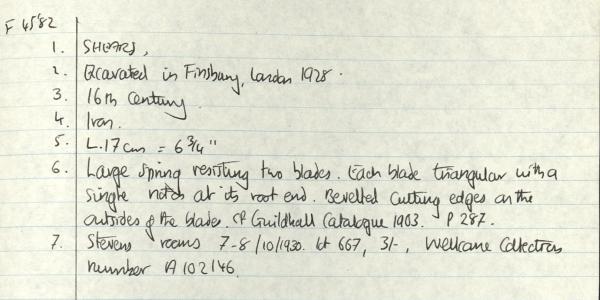 F 4582
1. SHEARS,
2. Excavated in Finsbury, London 1928.
3. 16th Century
4. Iron.
5. L. 17 cms = 6 3/4"
6. Large spring resisting two blades. Each blade triangular with a
single notch at its root end. Bevelled cutting edges on the
outsides of the blades. CF Guildhall Catalogue 1903. P 287.
7. Stevens rooms 7-8/10/1930. lot 667, 3/-, Wellcome Collections
number A 102146.